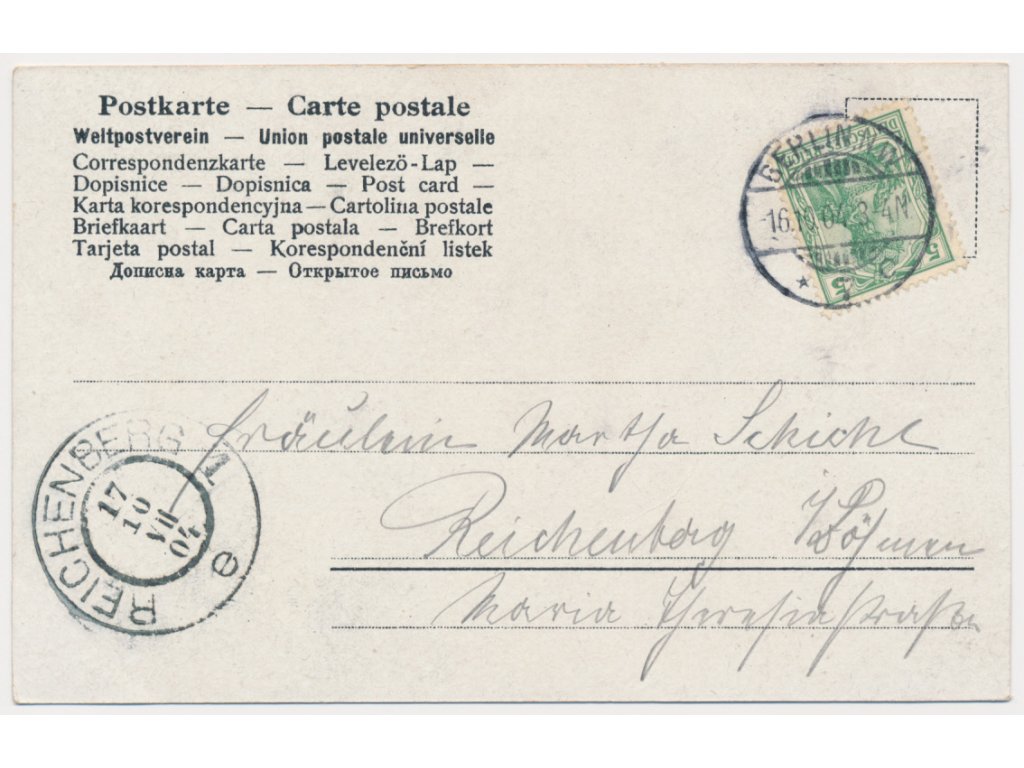 Postkarte — Carte postale
Weltpostverein — Union postale universelle
Correspondenzkarte — Levelező-Lap —
Dopisnice — Dopisnica — Post card —
Karta korespondencyjna — Cartolina postale
Briefkaart — Carta postala — Brefkort
Tarjeta postal — Korespondenční listek
Дописна карта — Открытое письмо
BERLIN
16.10.04 3-4N
* 7 c
5
5
Fräulein Martha Schickl
Reichenberg i/Böhmen
Maria Theresiastraße
REICHENBERG 1
17
10
VIII
04
e